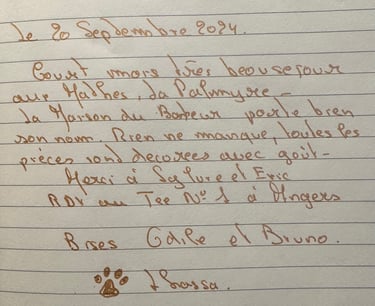 Le 20 Septembre 2024.
Court mais très beau séjour
aux Mathes, La Palmyre -
La Maison du Bonheur porte bien
son nom. Rien ne manque, toutes les
pièces sont décorées avec goût -
Merci à Sylvie et Eric
RDV au Tee N° 1 à Angers
Bises Gaile et Bruno.